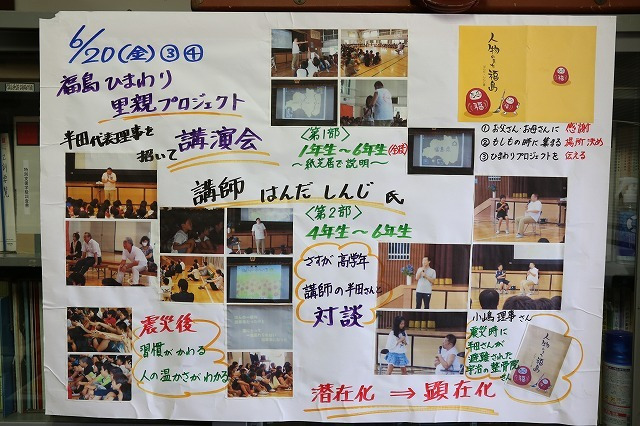 6/20(金)③④
福島ひまわり
里親プロジェクト
半田代表理事を
招いて 講演会
講師 はんだ しんじ 氏
〈第1部〉
1年生〜6年生(全校)
〜紙芝居で説明〜
〈第2部〉
4年生〜6年生
さすが 高学年
講師の半田さんと
対談
人物から福島
① お父さん・お母さんに 感謝
② もしもの時に集まる 場所決め
③ ひまわりプロジェクトを 伝える
震災後
習慣がかわる
人の温かさがわかる
小嶋理事さん
震災時に
半田さんが
避難された
宇治の整骨院
さん
潜在化 ⇒ 顕在化